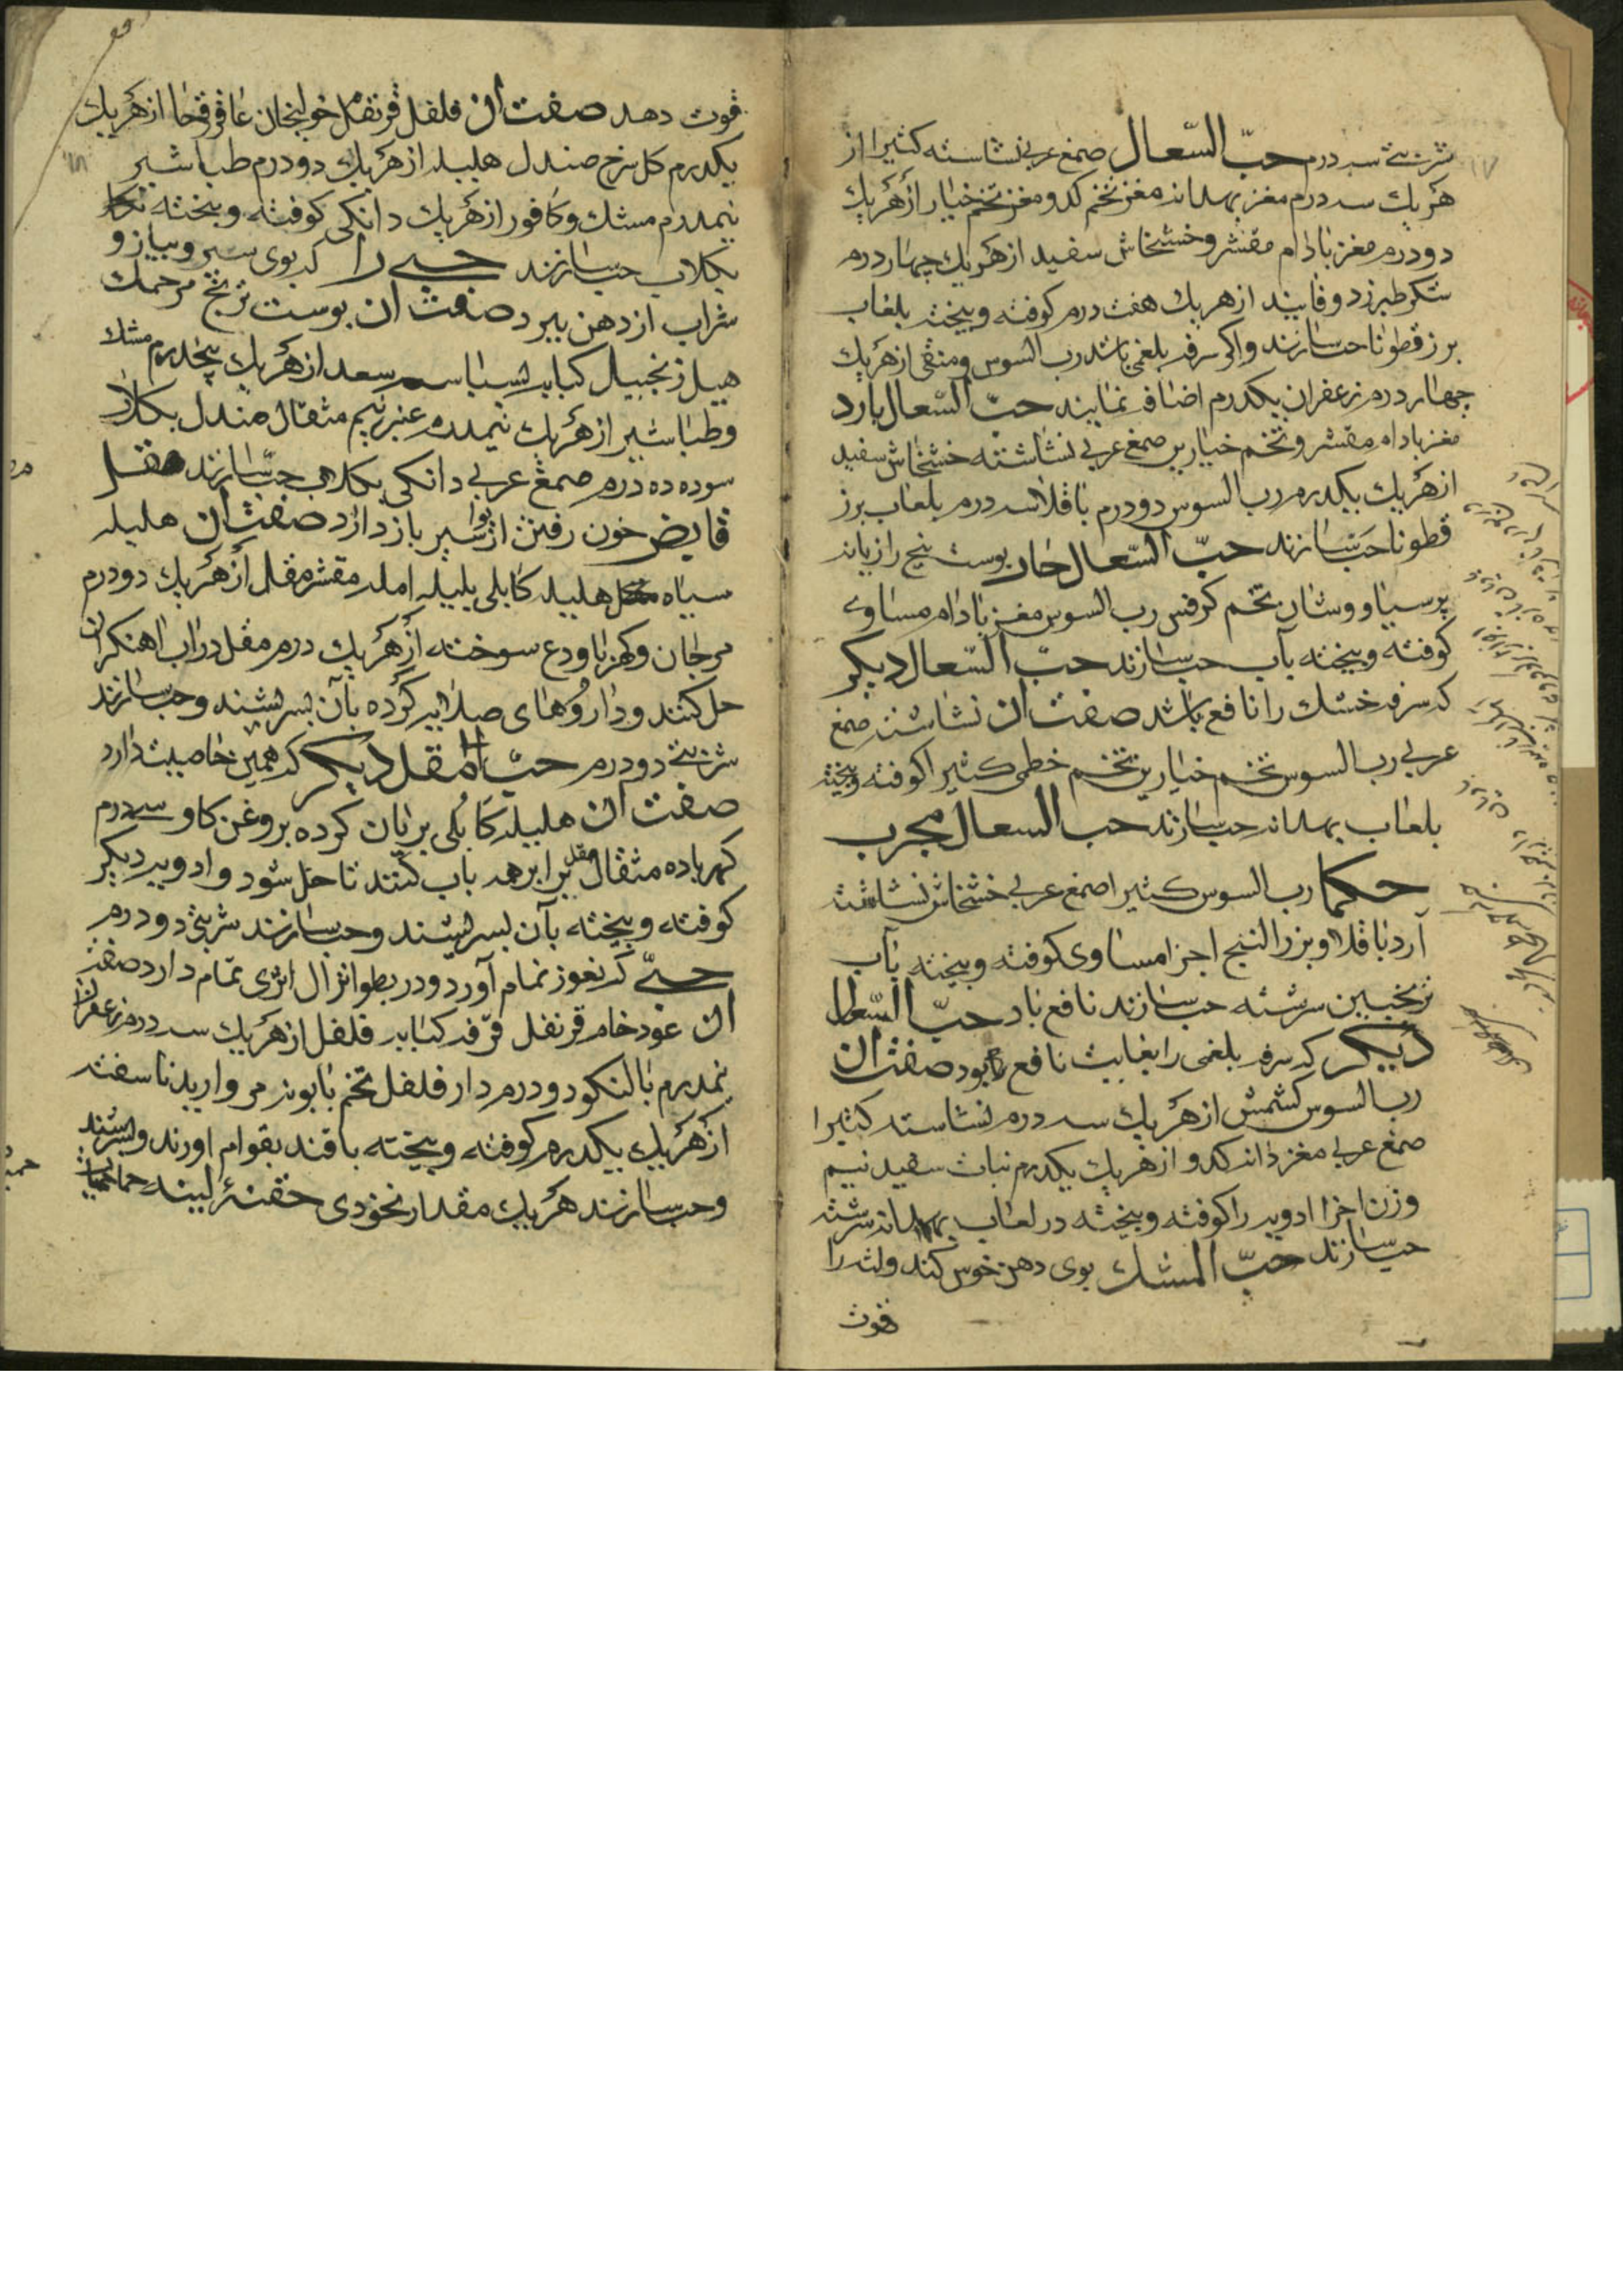 شربتی سه درم حبّ السّعال صمغ عربی نشاسته کثیرا از
هر یک سه درم مغز بهدانه مغز تخم کدو مغز تخم خیار از هر یک
دو درم مغز بادام مقشر و خشخاش سفید از هر یک چهار درم
شکر طبرزد و فانیند از هر یک هفت درم کوفته و بیخته بلعاب
برز قطونا حب سازند و اکر سرفه بلغمی باشد رب السوس و منقی از هر یک
چهار درم زعفران یکدرم اضافه نمایند حبّ السّعال بارد
مغز بادام مقشر و تخم خیارین صمغ عربی نشاشته خشخاش سفید
از هر یک یکدرم رب السوس دو درم باقلا سه درم بلعاب برز
قطونا حب سازند حبّ السّعال حار پوست بیخ رازیانه
پرسیاوشان تخم کرفس رب السوس مغز بادام مساوی
کوفته و بیخته بآب حب سازند حبّ السّعال دیکر
که سرفه خشک را نافع باشد صفت ان نشاسته صمغ
عربی رب السوس تخم خیارین تخم خطمی کثیرا کوفته و بیخته
بلعاب بهدانه حب سازند حب السعال مجرب
حکما رب السوس کثیرا صمغ عربی خشخاش نشاشته
آرد باقلا و بزر البنج اجزا مساوی کوفته و بیخته بآب
ترنجبین سرشته حب سازند نافع باد حبّ السّعال
دیکر که سرفه بلغمی را بغایت نافع بود صفت ان
رب السوس کشمش از هر یک سه درم نشاسته کثیرا
صمغ عربی مغز دانه کدو از هر یک یکدرم نبات سفید نیم
وزن اجزا ادویه را کوفته و بیخته در لعاب بهدانه سرشته
حب سازند حبّ المشک بوی دهن خوش کند و لثه را
قوت
قوت دهد صفت ان فلفل قرنفل خولنجان عاقرقرحا از هر یک
یکدرم کل سرخ صندل هلیله از هر یک دو درم طباشیر
نیمدرم مشک و کافور از هر یک دانکی کوفته و بیخته
بکلاب حب سازند حبی را که بوی سیر و پیاز و
شراب از دهن ببرد صفت ان پوست ترنج
هیل زنجبیل کبابه بسباسه سعد از هر یک پنجدرم مشک
و طباشیر از هر یک نیمدرم عنبر نیم مثقال صندل بکلاب
سوده ده درم صمغ عربی دانکی بکلاب حب سازند مقل
قابض خون رفتن از بواسیر باز دارد صفت ان هلیله
سیاه هلیله کابلی بلیله امله مقشر مقل از هر یک دو درم
مرجان و کهربا ودع سوخته از هر یک درم مقل در اب اهنکران
حل کنند و داروهای صلایه کرده بآن بسرشند و حب سازند
شربتی دو درم حبّ المقل دیکر که همین خاصیت دارد
صفت ان هلیله کابلی بریان کرده بروغن کاو سه درم
کهربا ده مثقال مقل برابر همه باب کنند تا حل شود و ادویه دیکر
کوفته و بیخته بآن بسرشند و حب سازند شربتی دو درم
حبّی که نعوذ تمام آورد و در بطو انزال اثری تمام دارد صفت
ان عود خام قرنفل قرفه کبابه فلفل از هر یک سه درم زعفران
نیمدرم بالنکو دو درم دار فلفل تخم بابونه مروارید ناسفته
از هر یک یکدرم کوفته و بیخته با قند بقوام اورند و بسرشند
و حب سازند هر یک مقدار نخودی حقنۀ لینه